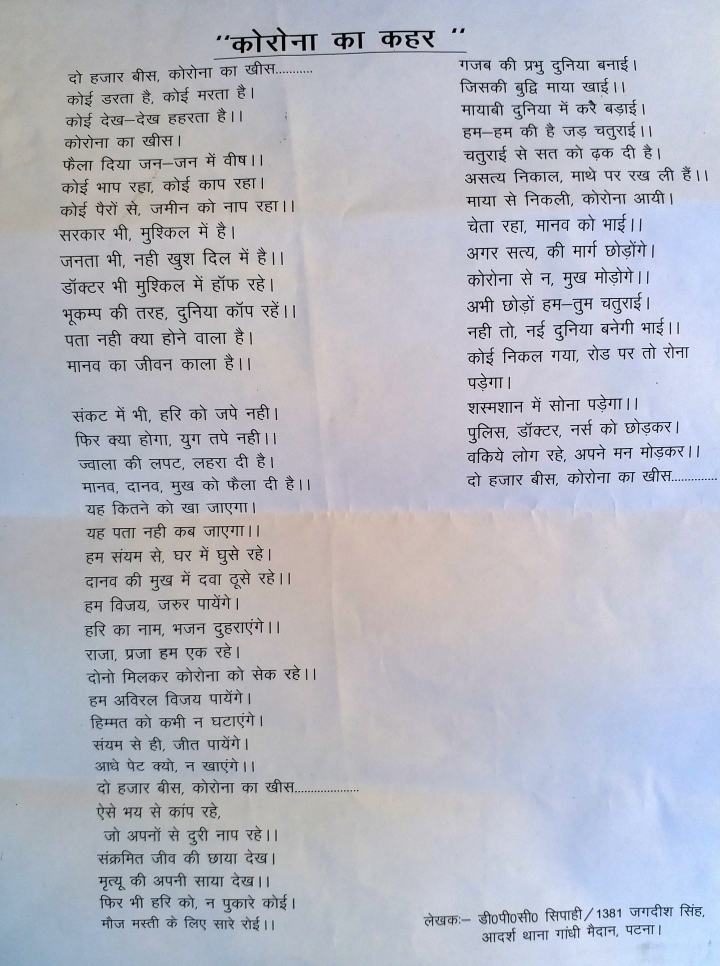 "कोरोना का कहर"
दो हजार बीस, कोरोना का खीस...........
कोई डरता है, कोई मरता है।
कोई देख–देख हहरता है।।
कोरोना का खीस।
फैला दिया जन–जन में वीष।।
कोई भाप रहा, कोई काप रहा।
कोई पैरों से, जमीन को नाप रहा।।
सरकार भी, मुश्किल में है।
जनता भी, नही खुश दिल में है।।
डॉक्टर भी मुश्किल में हॉफ रहे।
भूकम्प की तरह, दुनिया कॉप रहें।।
पता नही क्या होने वाला है।
मानव का जीवन काला है।।
संकट में भी, हरि को जपे नही।
फिर क्या होगा, युग तपे नही।।
ज्वाला की लपट, लहरा दी है।
मानव, दानव, मुख को फैला दी है।।
यह कितने को खा जाएगा।
यह पता नही कब जाएगा।।
हम संयम से, घर में घुसे रहे।
दानव की मुख में दवा ठूसे रहे।।
हम विजय, जरुर पायेंगे।
हरि का नाम, भजन दुहराएंगे।।
राजा, प्रजा हम एक रहे।
दोनो मिलकर कोरोना को सेक रहे।।
हम अविरल विजय पायेंगे।
हिम्मत को कभी न घटाएंगे।
संयम से ही, जीत पायेंगे।
आधे पेट क्यो, न खाएंगे।।
दो हजार बीस, कोरोना का खीस....................
ऐसे भय से कांप रहे,
जो अपनों से दुरी नाप रहे।।
संक्रमित जीव की छाया देख।
मृत्यू की अपनी साया देख।।
फिर भी हरि को, न पुकारे कोई।
मौज मस्ती के लिए सारे रोई।।
गजब की प्रभु दुनिया बनाई।
जिसकी बुद्वि माया खाई।।
मायाबी दुनिया में करै बड़ाई।
हम–हम की है जड़ चतुराई।।
चतुराई से सत को ढ़क दी है।
असत्य निकाल, माथे पर रख ली हैं।।
माया से निकली, कोरोना आयी।
चेता रहा, मानव को भाई।।
अगर सत्य, की मार्ग छोड़ोंगे।
कोरोना से न, मुख मोड़ोगे।।
अभी छोड़ों हम–तुम चतुराई।
नही तो, नई दुनिया बनेगी भाई।।
कोई निकल गया, रोड पर तो रोना
पड़ेगा।
शस्मशान में सोना पड़ेगा।।
पुलिस, डॉक्टर, नर्स को छोड़कर।
वकिये लोग रहे, अपने मन मोड़कर।।
दो हजार बीस, कोरोना का खीस..............
लेखकः– डी0पी0सी0 सिपाही/1381 जगदीश सिंह,
आदर्श थाना गांधी मैदान, पटना।